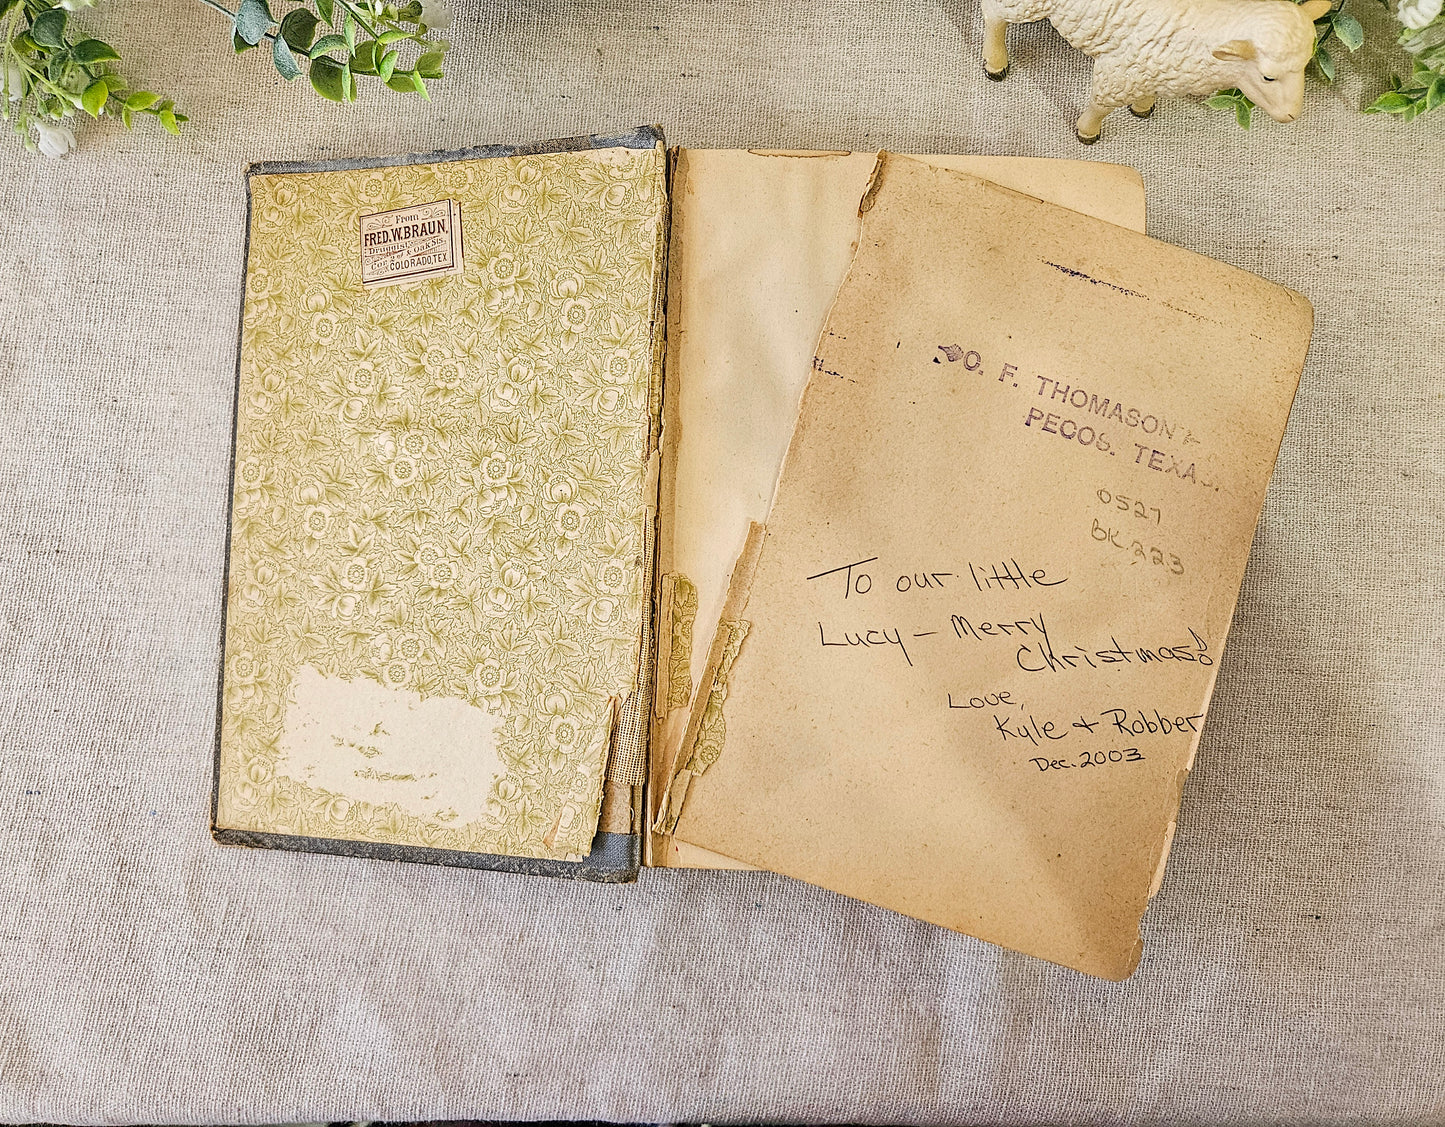 From
FRED.W.BRAUN,
Druggist,
Cor 2d & Oak Sts.
COLORADO, TEX
O. F. THOMASON
PECOS, TEXAS.
0527
BK.223
To our little
Lucy – Merry
Christmas!
Love,
Kyle + Robber
Dec. 2003